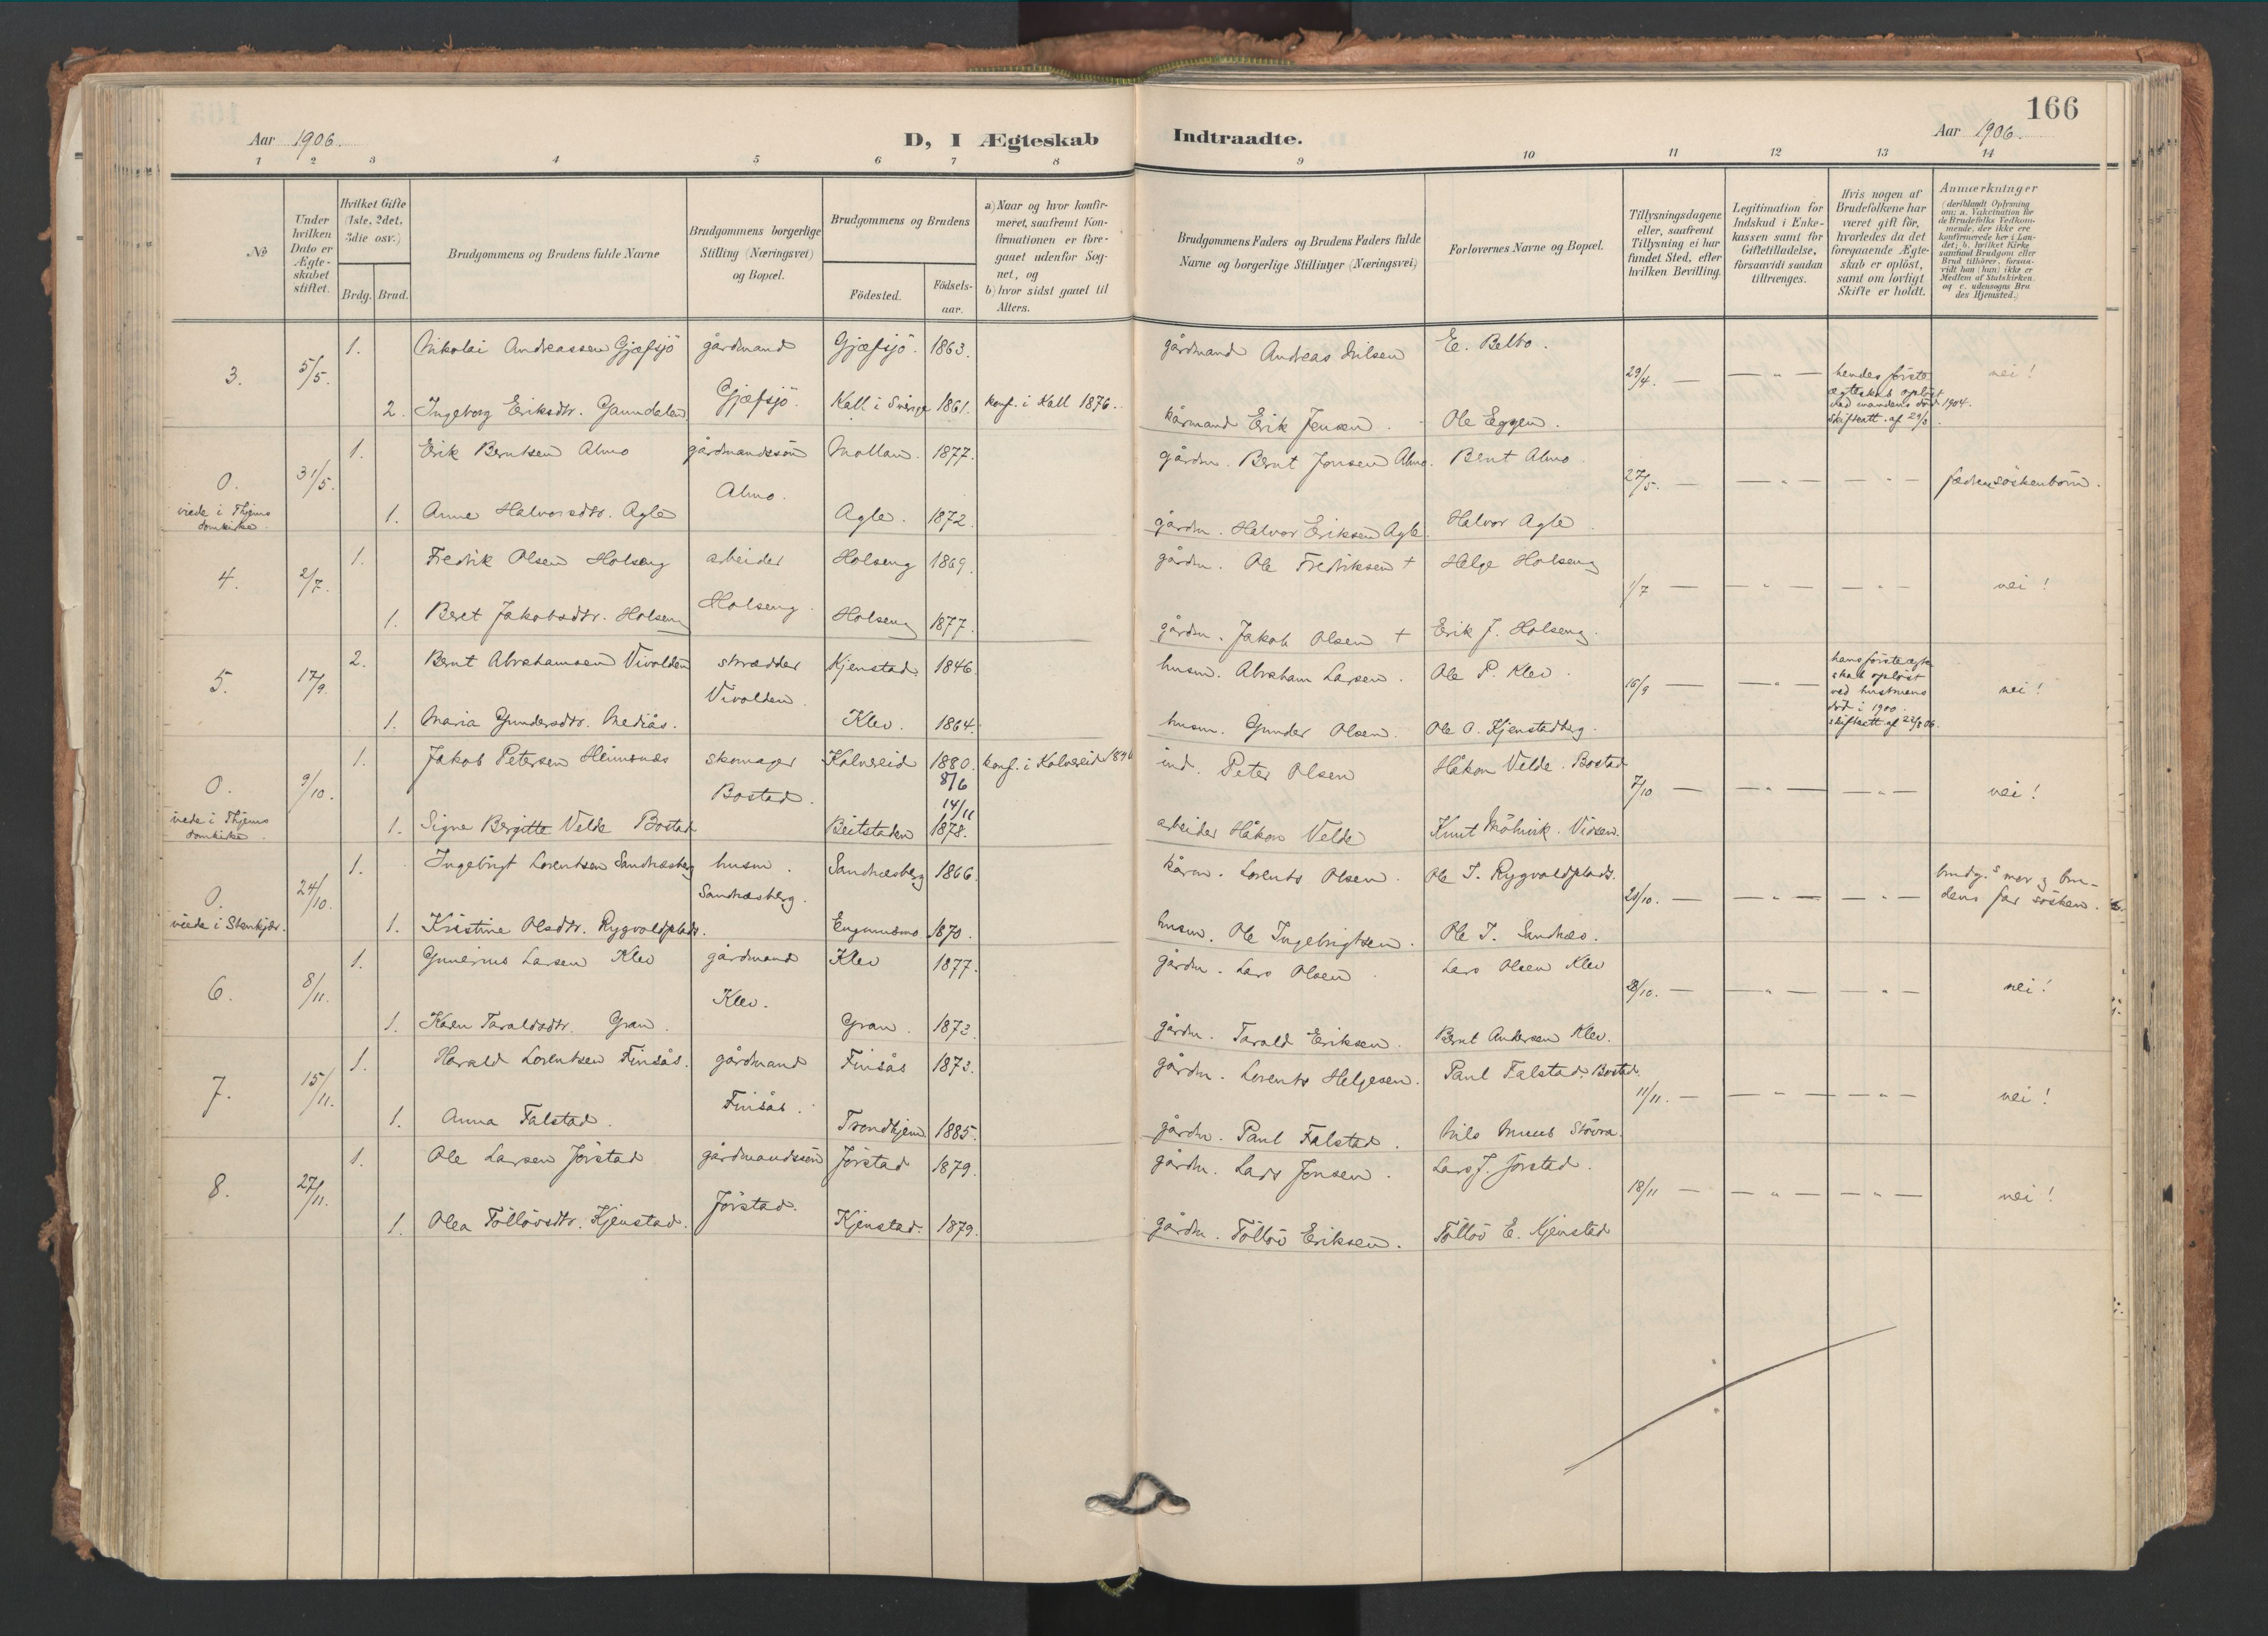 166
Aar 1906.
D, I Ægteskab Indtraadte.
Aar 1906.
1 2 3 4 5 6 7 8 9 10 11 12 13 14
No
Under hvilken Dato er Ægteskabet stiftet.
Hvilket Gifte (1ste, 2det, 3die osv.)
Brdg. Brud.
Brudgommens og Brudens fulde Navne
Brudgommens borgerlige Stilling (Næringsvei) og Bopæl.
Brudgommens og Brudens
Födested. Födselsaar.
a) Naar og hvor konfirmeret, saafremt Konfirmationen er foregaaet udenfor Sognet, og
b) hvor sidst gaaet til Alters.
Brudgommens Faders og Brudens Faders fulde Navne og borgerlige Stillinger (Næringsvei)
Forlovernes Navne og Bopæl.
Tillysningsdagene eller, saafremt Tillysning ei har fundet Sted, efter hvilken Bevilling.
Legitimation for Indskud i Enkekassen samt for Giftetilladelse, forsaavidt saadan tiltrænges.
Hvis nogen af Brudefolkene har været gift för, hvorledes da det foregaaende Ægteskab er oplöst, samt om lovligt Skifte er holdt.
Anmærkninger (deriblandt Oplysning om: a. Vakcination for de Brudefolks Vedkommende, der ikke ere konfirmerede her i Landet; b. hvilket Kirkesamfund Brudgom eller Brud tilhörer, forsaavidt han (hun) ikke er Medlem af Statskirken. og c. udensogns Brudes Hjemsted.)
3. 5/5. 1. Nikolai Andreassen Gjæfsjö gårdmand Gjæfsjö. 1863. gårdmand Andreas Nilsen E. Belbo. 29/4. — — " — hendes förste nei!
2. Ingeborg Eriksdtr. Gaundalen Gjæfsjö. Kall i Sverige 1861. konf. i Kall 1876. kårmand Erik Jensen. Ole Eggen. ægteskab oplöst
ved mandens död 1904.
skifteatt. af 29/3.
0. 31/5. 1. Erik Berntsen Almo gårdmandssön Mollan. 1877. gårdm. Bernt Jonsen Almo. Bernt Almo 27/5. — — " — — " — fædrene söskenbörn.
viede i Thjems domkirke.
1. Anne Halvorsdtr. Agle Almo. Agle. 1872. gårdm. Halvor Eriksen Agle. Halvor Agle
4. 2/7. 1. Fredrik Olsen Holseng arbeider Holseng 1869. gårdm. Ole Fredriksen + Helge Holseng 1/7 — — " — — " — nei!
1. Beret Jakobsdtr. Holseng Holseng. Holseng 1877. gårdm. Jakob Olsen + Erik J. Holseng.
5. 17/9. 2. Bernt Abrahamsen Vivolden skrædder Kjenstad. 1846. husm. Abraham Larsen. Ole P. Klev. 16/9 — — " — hans förste ægteskab oplöst nei!
ved hustruens
död i 1900.
skifteatt. af 22/8 06.
1. Maria Gundersdtr. Mediås. Vivolden. Klev. 1864. husm. Gunder Olsen. Ole O. Kjenstadberg.
0. 9/10. 1. Jakob Petersen Heimsnæs skomager Kolvereid 1880. 8/6 konf. i Kolvereid ind. Peter Olsen Håkon Velde. Bostad 7/10 — — " — — " — nei!
viede i Thjems domkirke.
1. Signe Bergitte Velde Bostad Bostad. Beitstaden 14/11 1878. arbeider Håkon Velde Knut
0. 24/10. 1. Ingebrigt Lorentsen Sandnæsberg husm. Sandnæsberg 1866. kårm. Lorents Olsen. Ole I. Rygvoldplads. 21/10. — — " — — " — brudg.s mor & brudens far sösken.
viede i Stenkjær.
1. Kristine Olsdtr. Rygvoldplads. Sandnæsberg. 1870. husm. Ole Ingebrigtsen. Ole I. Sandnæs.
6. 8/11. 1. Gunerius Larsen Klev gårdmand Klev 1877. gårdm. Lars Olsen Lars Olsen Klev 28/10. — — " — — " — nei!
1. Karen Taraldsdtr. Gran. Klev. Gran. 1873. gårdm. Tarald Eriksen. Bernt Andersen Klev.
7. 15/11. 1. Harald Lorentsen Finsås. gårdmand Finsås 1873. gårdm. Lorents Helgesen. Paul Falstad. Bostad. 11/11. — — " — — " — nei!
1. Anna Falstad. Finsås. Trondhjem 1885. gårdm. Paul Falstad. Nils
8. 27/11. 1. Ole Larsen Jörstad gårdmandssön Jörstad 1879. gårdm. Lars Jonsen. Lars J. Jörstad. 18/11 — — " — — " — nei!
1. Olea Töllövsdtr. Kjenstad. Jörstad. Kjenstad. 1879. gårdm. Töllöv Eriksen. Töllöv E. Kjenstad